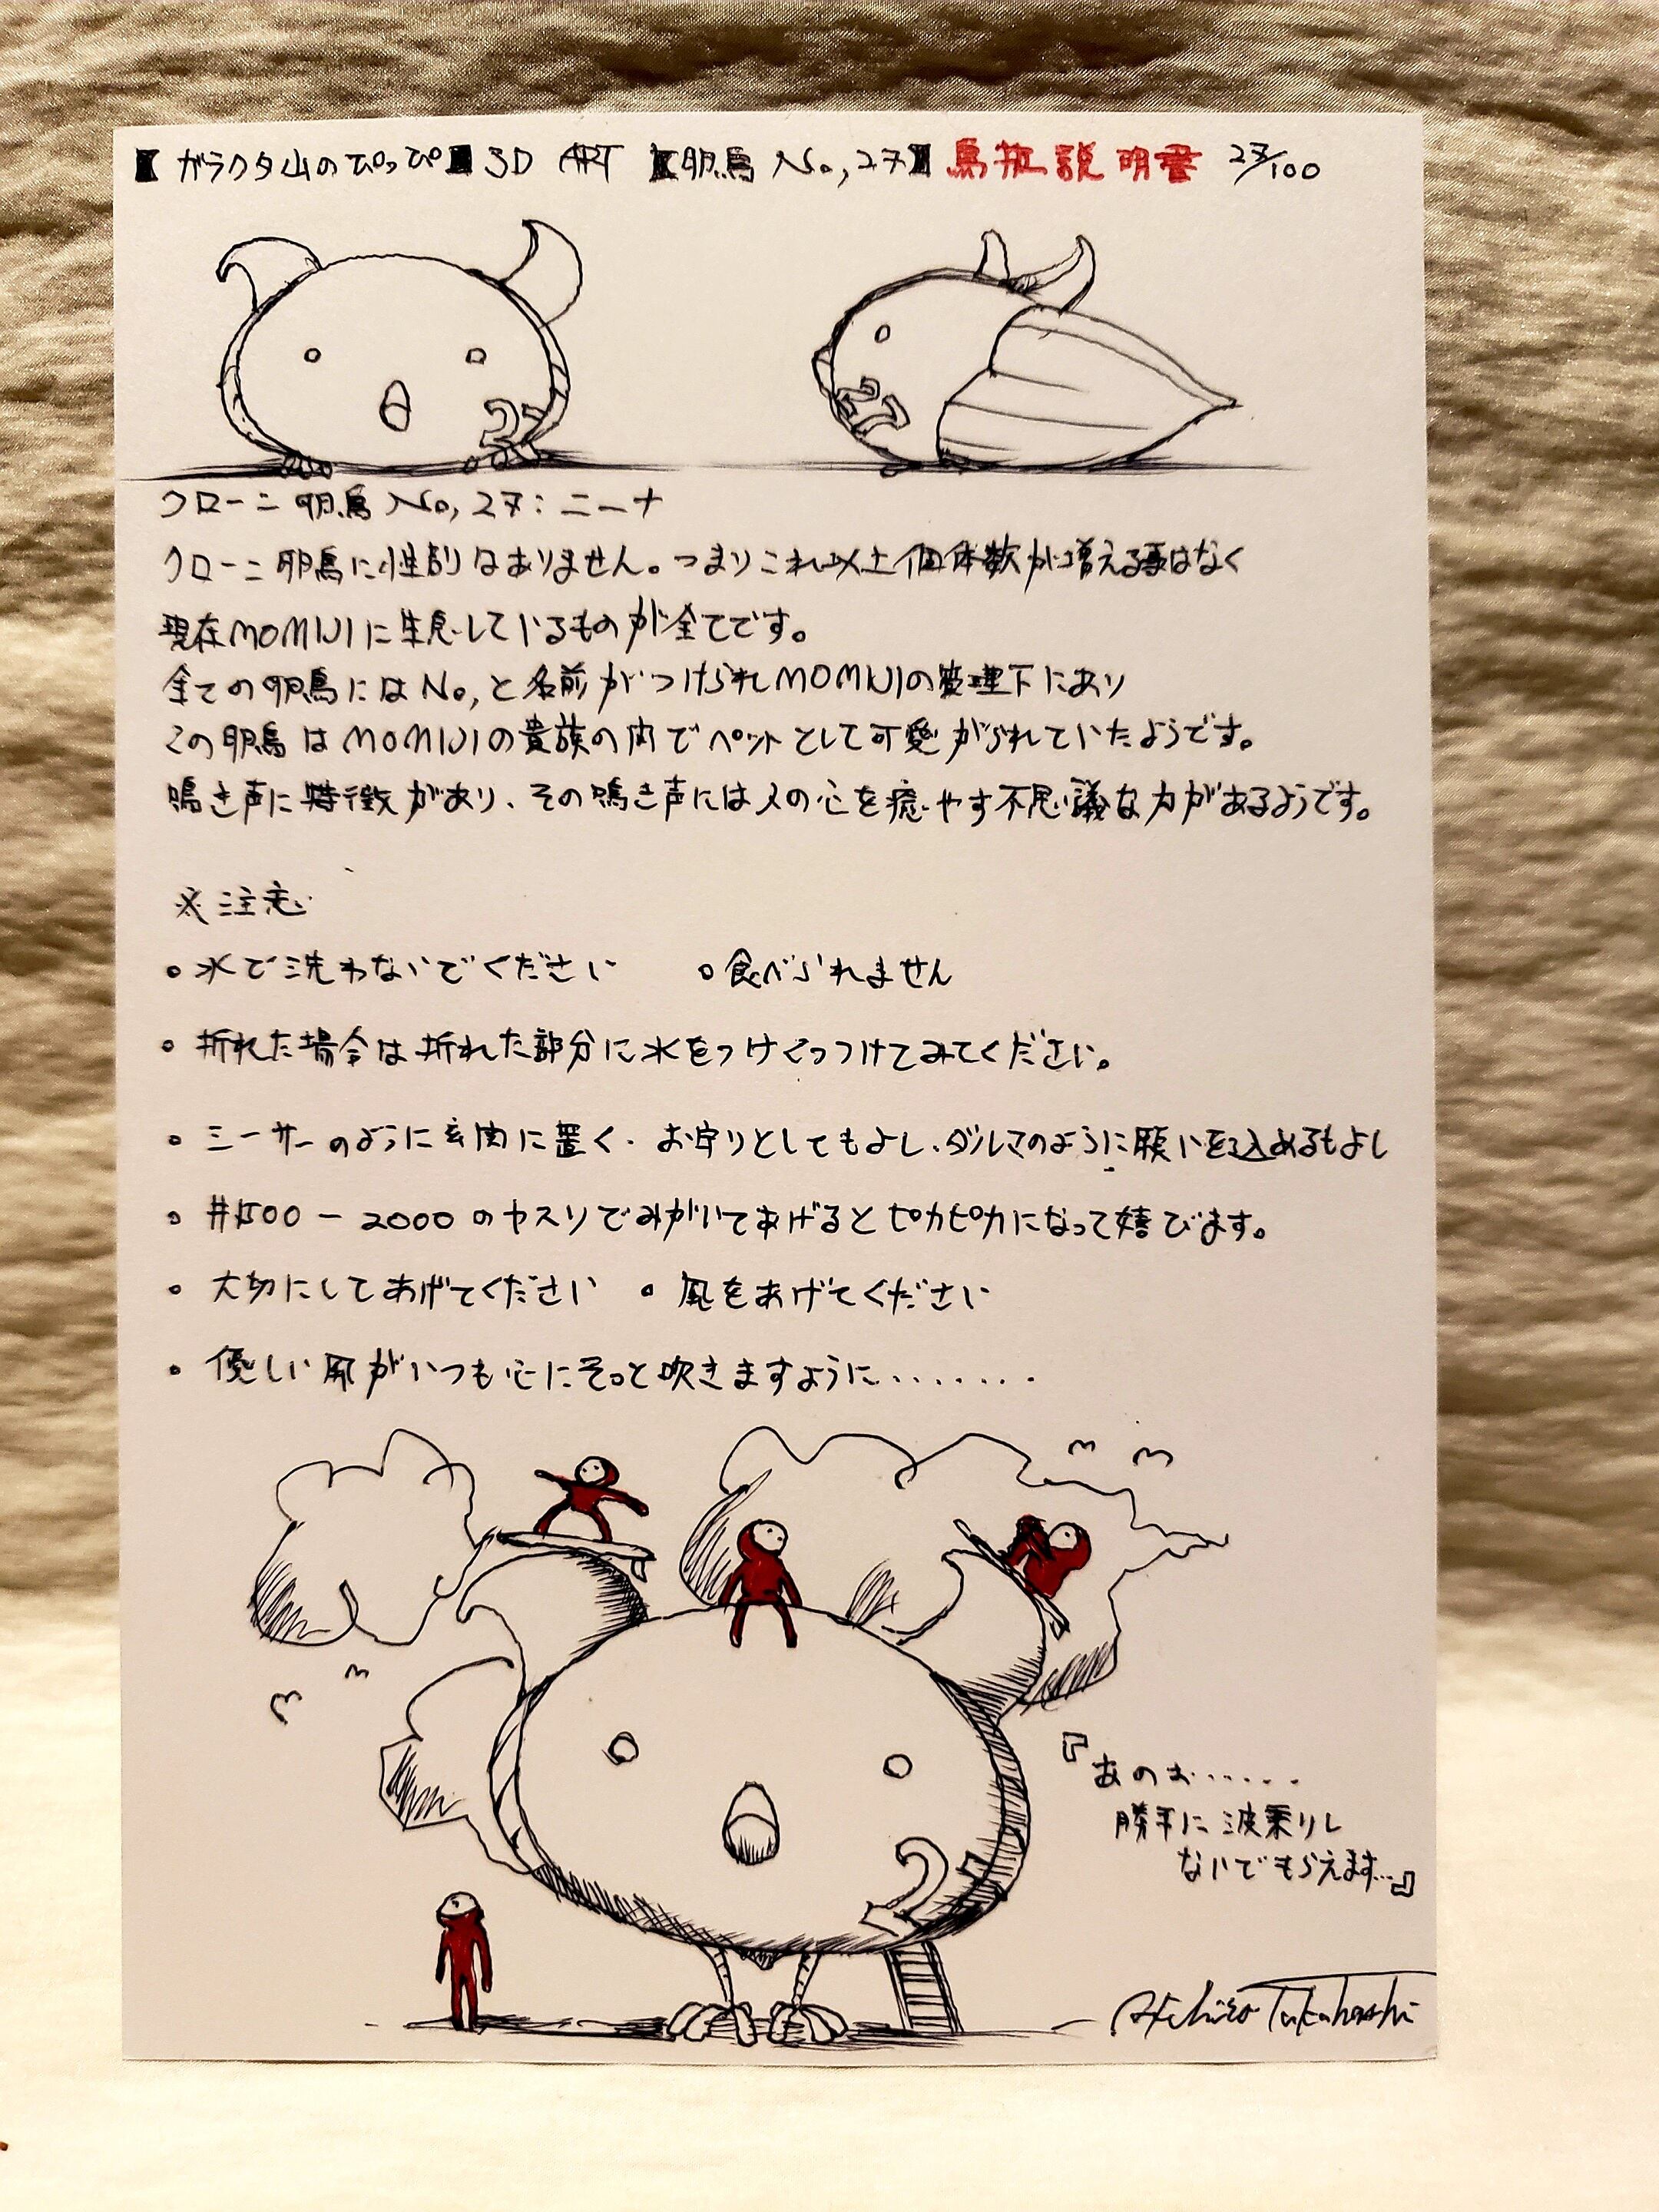 【ガラクタ山のぴっぴ】3D ART【卵鳥 No,27】鳥類説明書 27/100
27
27
クローニ卵鳥 No,27:ニーナ
クローニ卵鳥に性別はありません。つまりこれ以上個体数が増える事はなく
現在MOMIJIに生息しているものが全てです。
全ての卵鳥にはNo,と名前がつけられMOMIJIの管理下にあり
この卵鳥はMOMIJIの貴族の内でペットとして可愛がられていたようです。
鳴き声に特徴があり、その鳴き声には人の心を癒やす不思議な力があるようです。
※注意
・水で洗わないでください ・食べられません
・折れた場合は折れた部分に水をつけくっつけてみてください。
・シーサーのように玄関に置く、お守りとしてもよし、ダルマのように願いを込めるもよし
・#1500-2000のヤスリでみがいてあげるとピカピカになって喜びます。
・大切にしてあげてください ・風をあげてください
・優しい風がいつも心にそっと吹きますように........
『あのぉ......
勝手に波乗りし
ないでもらえます...』
27
Akihiro Takahashi